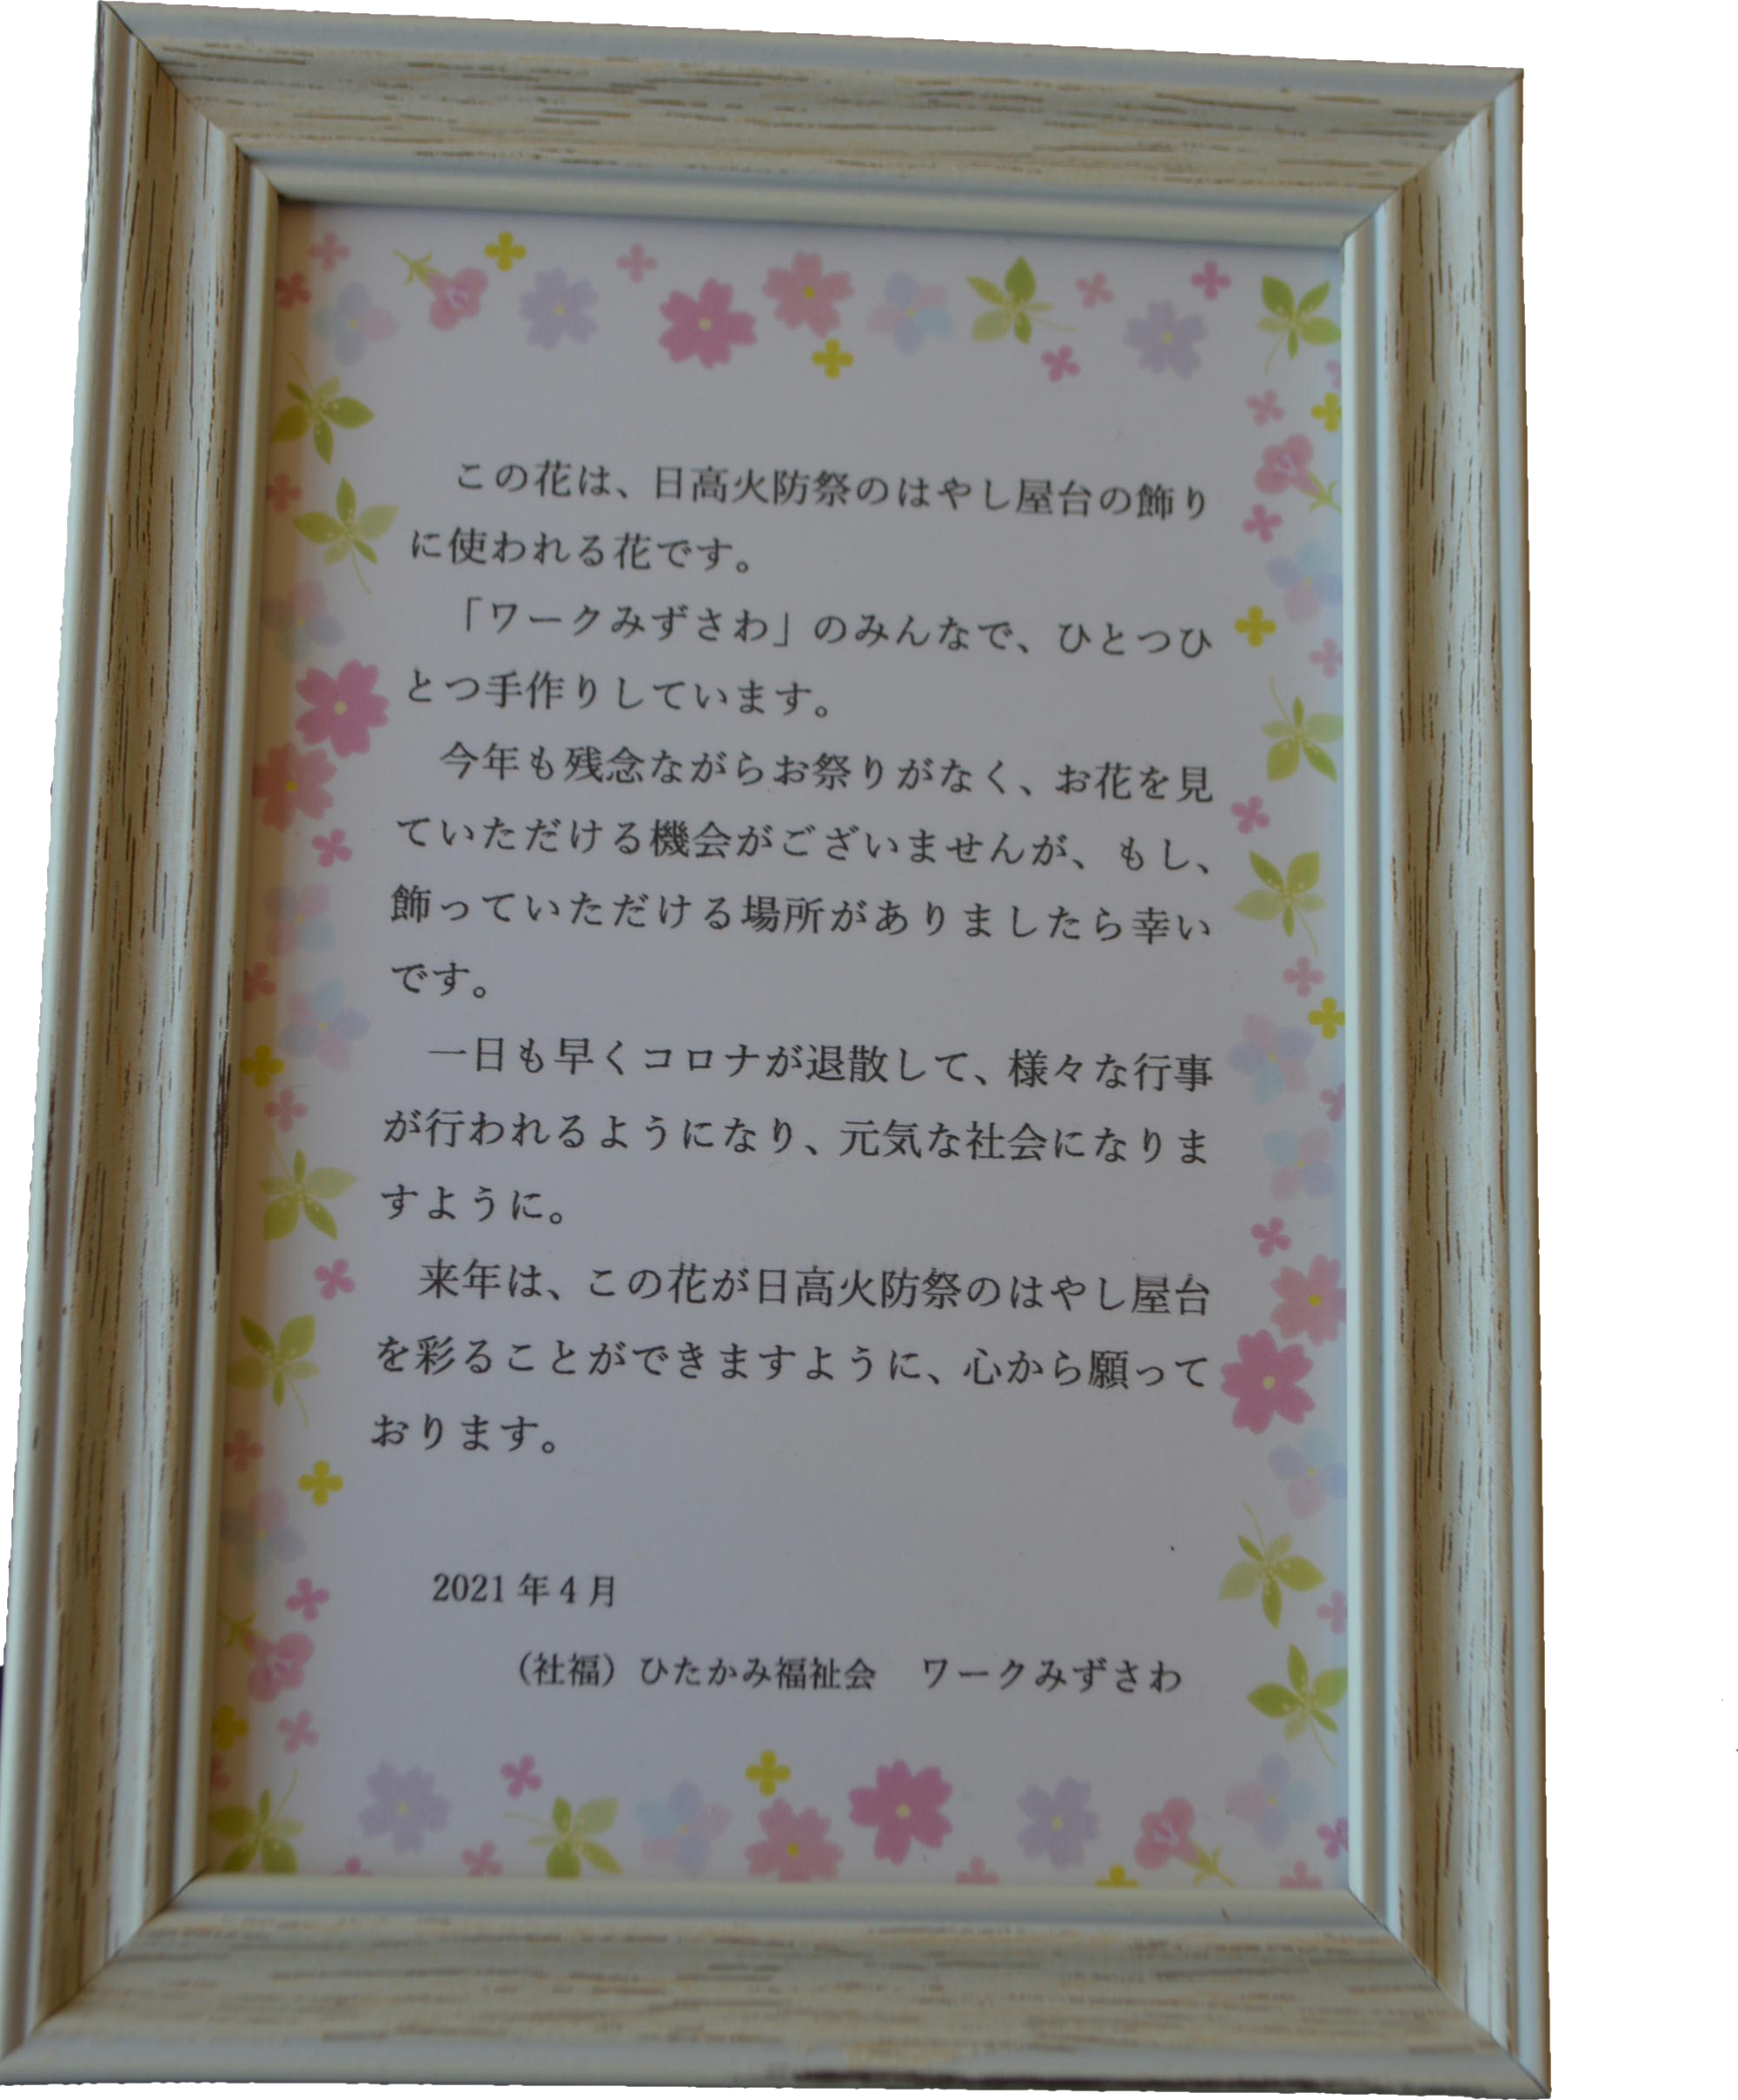 この花は、日高火防祭のはやし屋台の飾り
に使われる花です。
「ワークみずさわ」のみんなで、ひとつひ
とつ手作りしています。
今年も残念ながらお祭りがなく、お花を見
ていただける機会がございませんが、もし、
飾っていただける場所がありましたら幸い
です。
一日も早くコロナが退散して、様々な行事
が行われるようになり、元気な社会になりま
すように。
来年は、この花が日高火防祭のはやし屋台
を彩ることができますように、心から願って
おります。
2021年4月
（社福）ひたかみ福祉会　ワークみずさわ